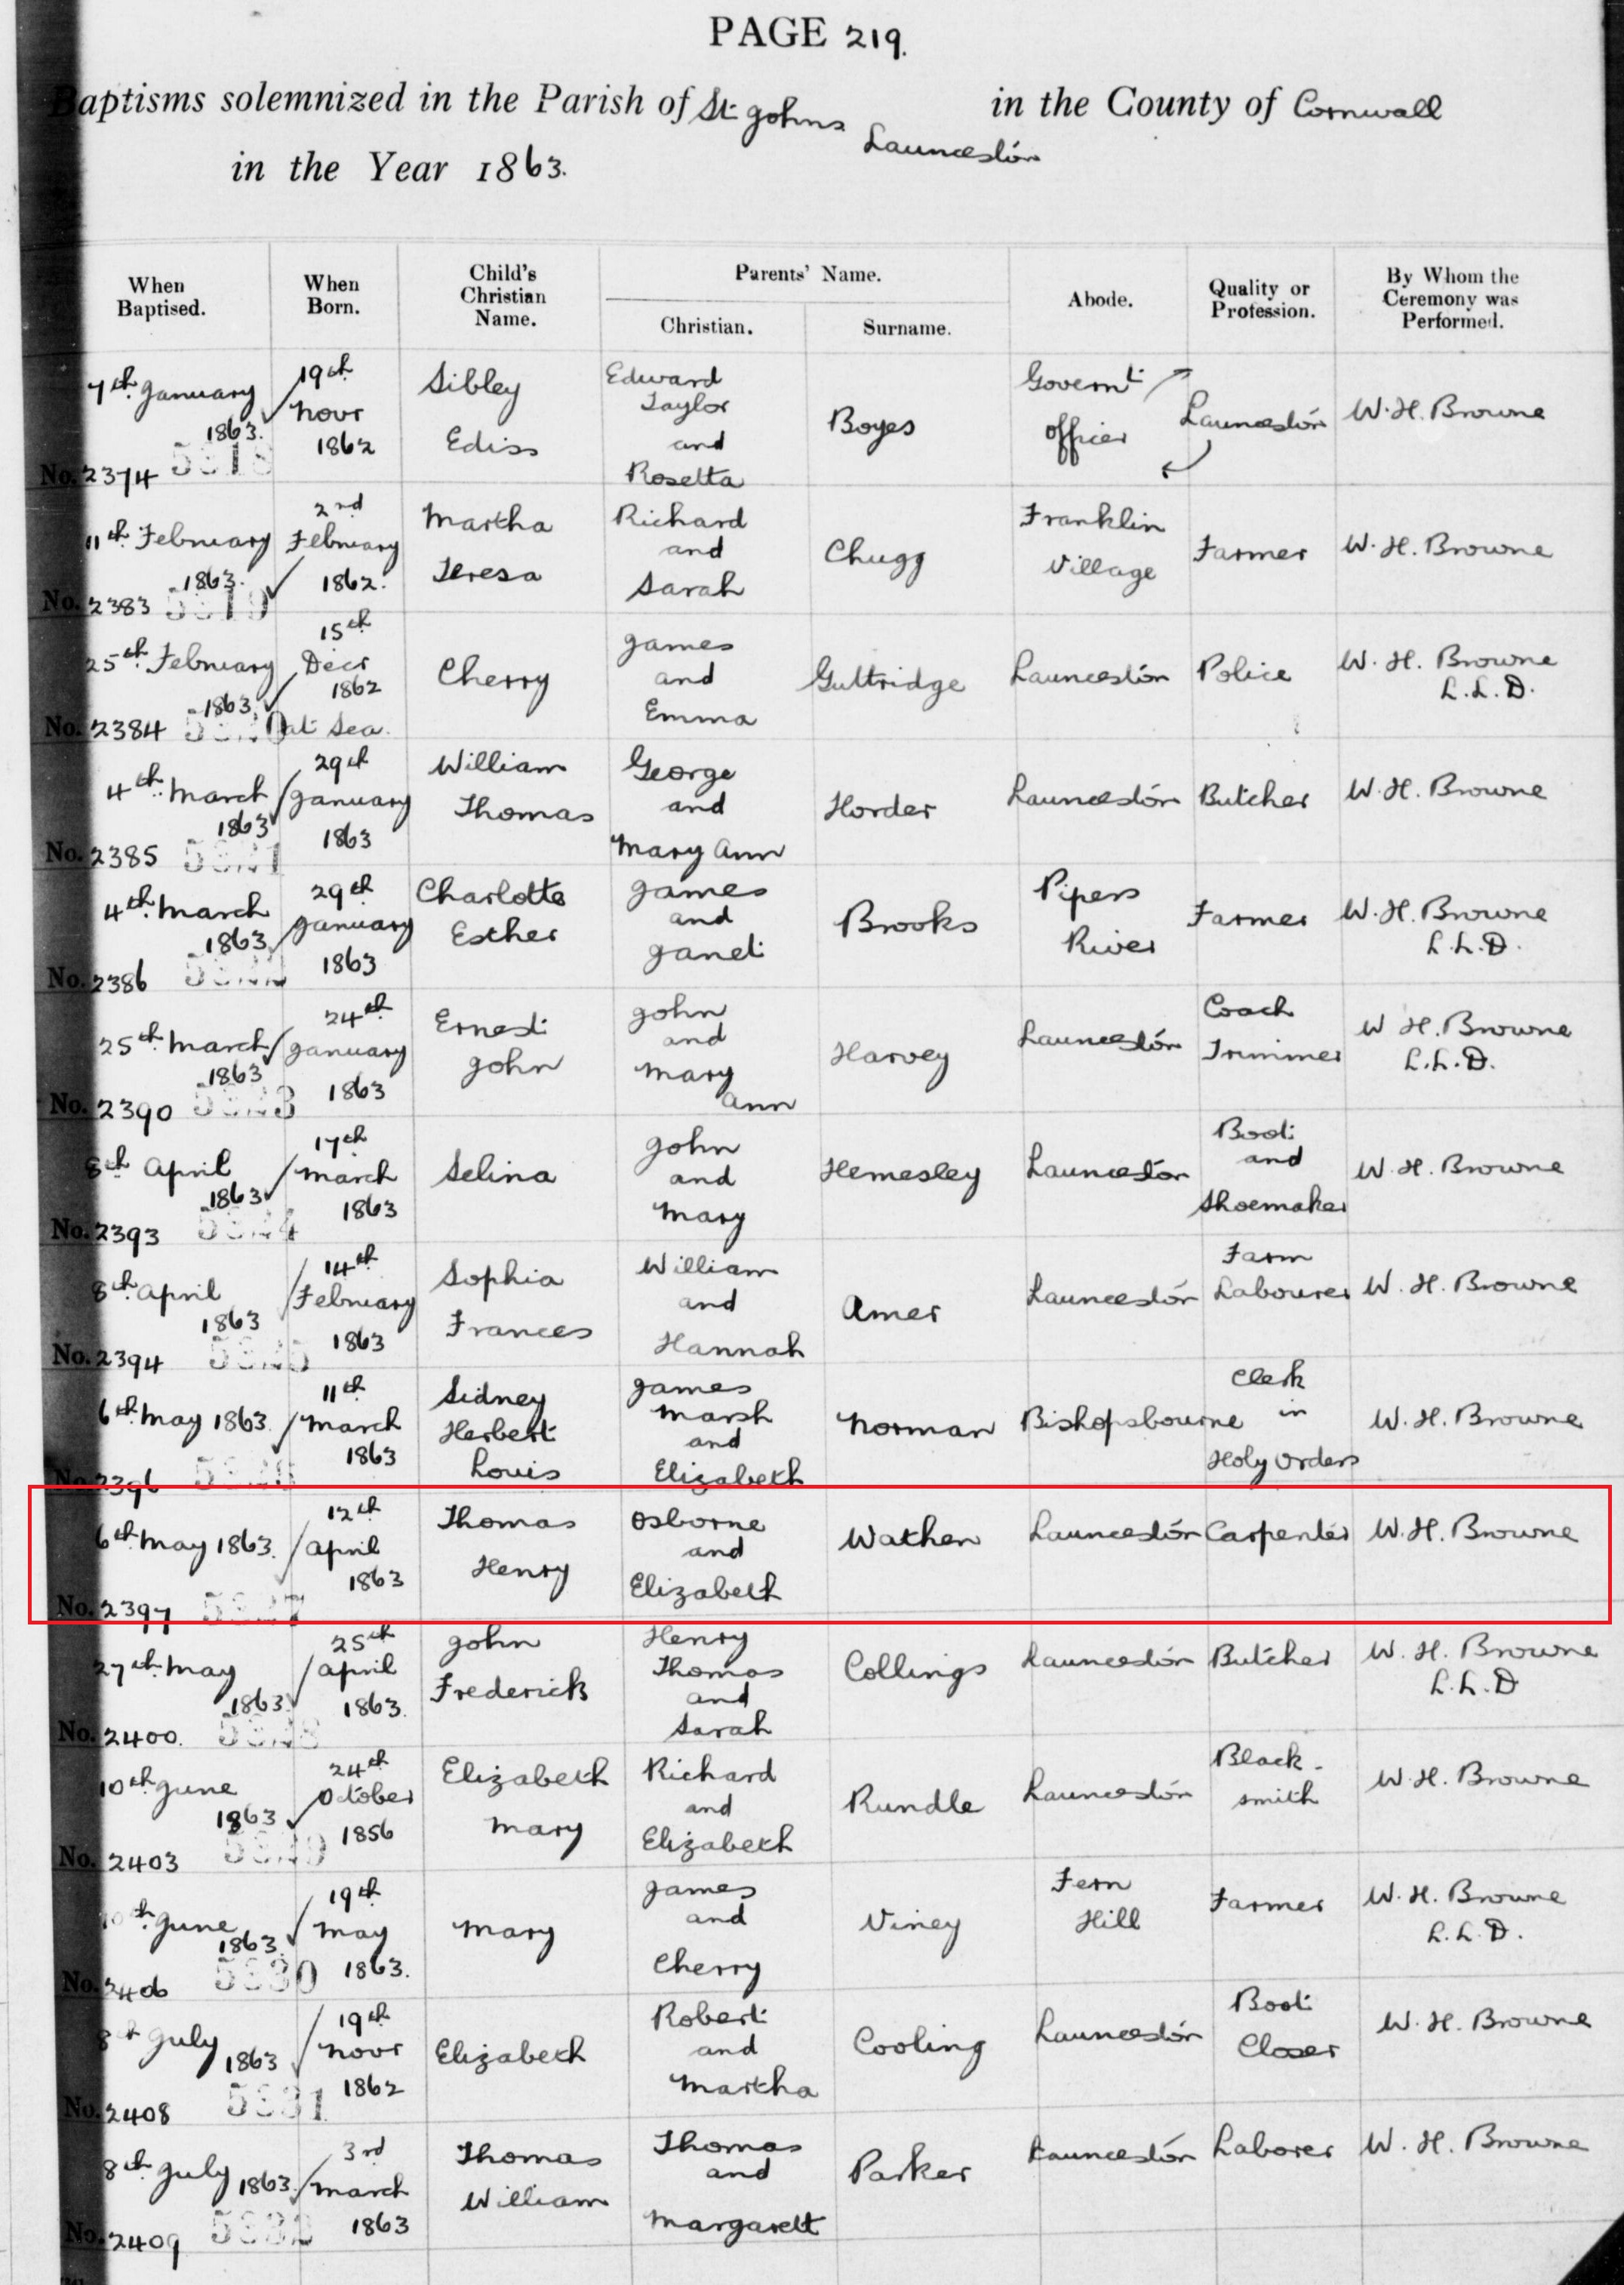 PAGE 219.
Baptisms solemnized in the Parish of St Johns Launceston in the County of Cornwall
in the Year 1863.
When Baptised.
When Born.
Child's Christian Name.
Parents' Name.
Christian.
Surname.
Abode.
Quality or Profession.
By Whom the Ceremony was Performed.
7th January 1863. No. 2374 5318
19th Novr 1862
Sibley Ediss
Edward Taylor and Rosetta
Boyes
Governt officer
Launceston
W. H. Browne
11th February 1863. No. 2383 5319
2nd February 1862.
Martha Teresa
Richard and Sarah
Chugg
Franklin Village
Farmer
W. H. Browne
25th February 1863 No. 2384 5320
15th Decr 1862 at Sea.
Cherry
James and Emma
Guttridge
Launceston
Police
W. H. Browne L.L.D.
4th March 1863 No. 2385 5321
29th January 1863
William Thomas
George and Mary Ann
Horder
Launceston
Butcher
W. H. Browne
4th March 1863 No. 2386 5322
29th January 1863
Charlotte Esther
James and Janet
Brooks
Pipers River
Farmer
W. H. Browne L.L.D.
25th March 1863 No. 2390 5323
24th January 1863
Ernest John
John and Mary Ann
Harvey
Launceston
Coach Trimmer
W H. Browne L.L.D.
8th April 1863 No. 2393 5324
17th March 1863
Selina
John and Mary
Hemesley
Launceston
Boot and Shoemaker
W. H. Browne
8th April 1863 No. 2394 5325
14th February 1863
Sophia Frances
William and Hannah
Amer
Launceston
Farm Labourer
W. H. Browne
6th May 1863. No. 2396 5326
11th March 1863
Sidney Herbert Louis
James Marsh and Elizabeth
Norman
Bishopsbourne
Clerk in Holy Orders
W. H. Browne
6th May 1863. No. 2397 5327
12th April 1863
Thomas Henry
Osborne and Elizabeth
Wathen
Launceston
Carpenter
W. H. Browne
27th May 1863 No. 2400. 5328
25th April 1863.
John Frederick
Henry Thomas and Sarah
Collings
Launceston
Butcher
W. H. Browne L.L.D
10th June 1863 No. 2403 5329
24th October 1856
Elizabeth Mary
Richard and Elizabeth
Rundle
Launceston
Black-smith
W. H. Browne
10th June 1863. No. 2406 5330
19th May 1863.
Mary
James and Cherry
Viney
Fern Hill
Farmer
W. H. Browne L.L.D.
8th July 1863 No. 2408 5331
19th Novr 1862
Elizabeth
Robert and Martha
Cooling
Launceston
Boot Closer
W. H. Browne
8th July 1863. No. 2409 5332
3rd March 1863
Thomas William
Thomas and Margarett
Parker
Launceston
Laborer
W. H. Browne